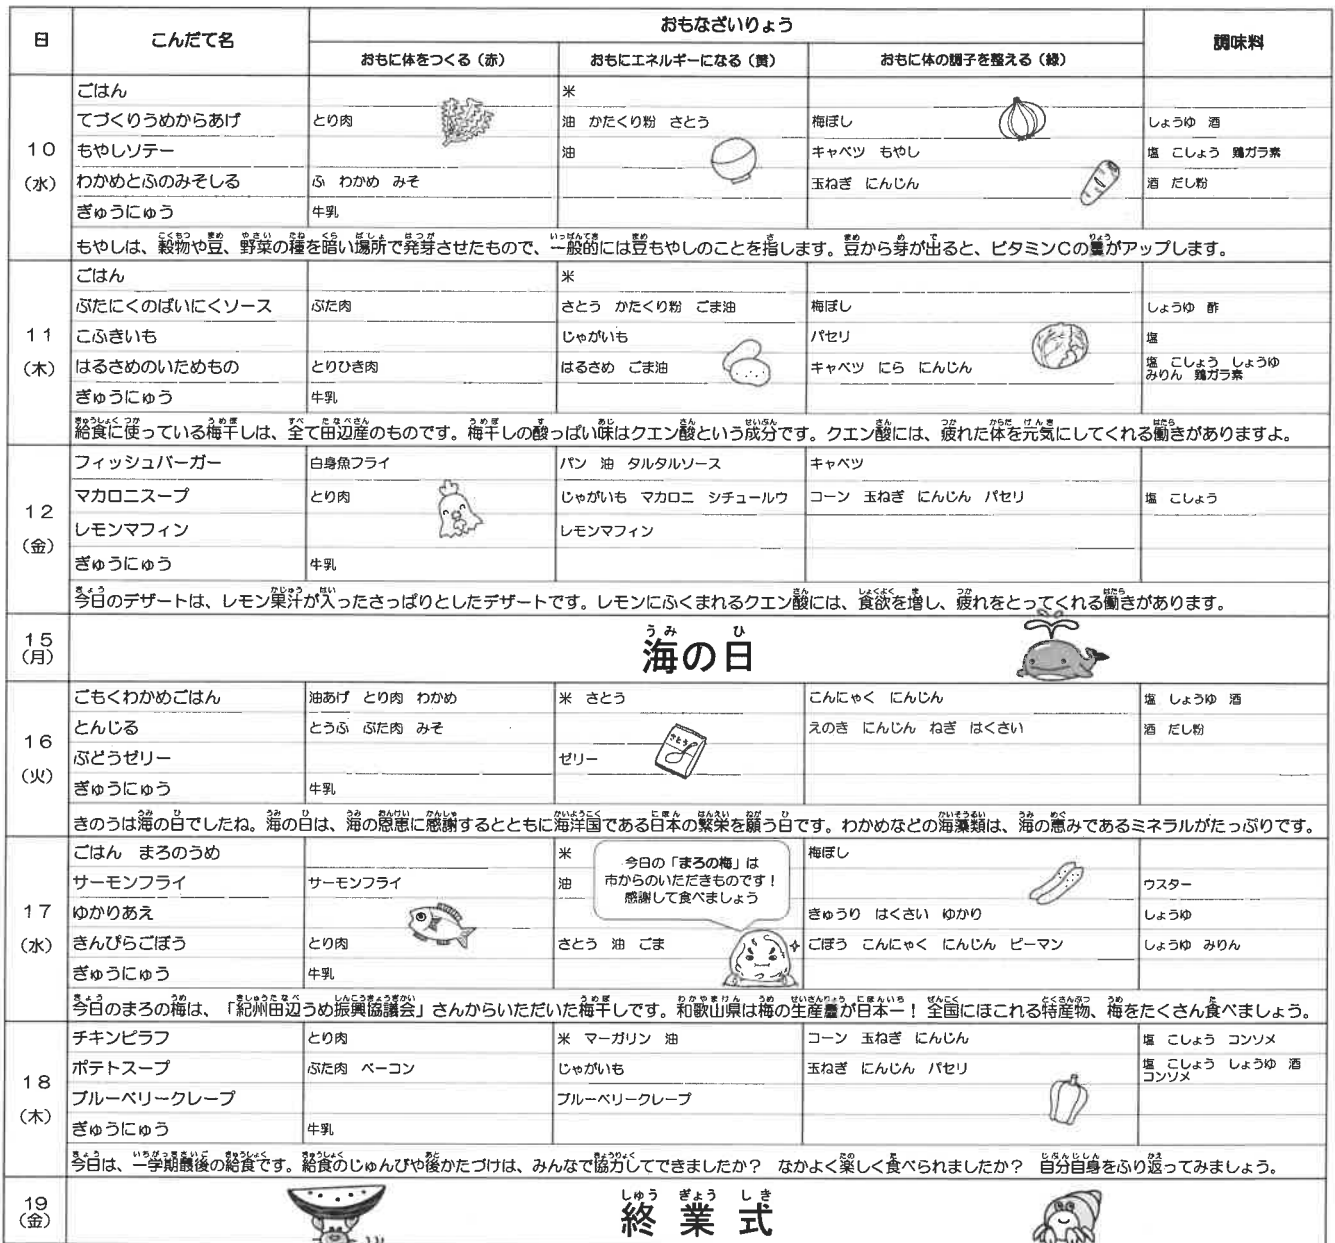 日 こんだて名 おもなざいりょう 調味料
おもに体をつくる（赤） おもにエネルギーになる（黄） おもに体の調子を整える（緑）
10（水）
ごはん 米
てづくりうめからあげ とり肉 油 かたくり粉 さとう 梅ぼし しょうゆ 酒
もやしソテー 油 キャベツ もやし 塩 こしょう 鶏ガラ素
わかめとふのみそしる ふ わかめ みそ 玉ねぎ にんじん 酒 だし粉
ぎゅうにゅう 牛乳
もやしは、穀物や豆、野菜の種を暗い場所で発芽させたもので、一般的には豆もやしのことを指します。豆から芽が出ると、ビタミンCの量がアップします。
11（木）
ごはん 米
ぶたにくのばいにくソース ぶた肉 さとう かたくり粉 ごま油 梅ぼし しょうゆ 酢
こふきいも じゃがいも パセリ 塩
はるさめのいためもの とりひき肉 はるさめ ごま油 キャベツ にら にんじん 塩 こしょう しょうゆ
みりん 鶏ガラ素
ぎゅうにゅう 牛乳
給食に使っている梅干しは、全て田辺産のものです。梅干しの酸っぱい味はクエン酸という成分です。クエン酸には、疲れた体を元気にしてくれる働きがありますよ。
12（金）
フィッシュバーガー 白身魚フライ パン 油 タルタルソース キャベツ
マカロニスープ とり肉 じゃがいも マカロニ シチュールウ コーン 玉ねぎ にんじん パセリ 塩 こしょう
レモンマフィン レモンマフィン
ぎゅうにゅう 牛乳
今日のデザートは、レモン果汁が入ったさっぱりとしたデザートです。レモンにふくまれるクエン酸には、食欲を増し、疲れをとってくれる働きがあります。
15（月） 海の日
16（火）
ごもくわかめごはん 油あげ とり肉 わかめ 米 さとう こんにゃく にんじん 塩 しょうゆ 酒
とんじる とうふ ぶた肉 みそ えのき にんじん ねぎ はくさい 酒 だし粉
さとう
ぶどうゼリー ゼリー
ぎゅうにゅう 牛乳
きのうは海の日でしたね。海の日は、海の恩恵に感謝するとともに海洋国である日本の繁栄を願う日です。わかめなどの海藻類は、海の恵みであるミネラルがたっぷりです。
17（水）
ごはん まろのうめ 米 梅ぼし
今日の「まろの梅」は
市からのいただきものです！
感謝して食べましょう
サーモンフライ サーモンフライ 油 ウスター
ゆかりあえ きゅうり はくさい ゆかり しょうゆ
きんぴらごぼう とり肉 さとう 油 ごま ごぼう こんにゃく にんじん ピーマン しょうゆ みりん
ぎゅうにゅう 牛乳
今日のまろの梅は、「紀州田辺うめ振興協議会」さんからいただいた梅干しです。和歌山県は梅の生産量が日本一！ 全国にほこれる特産物、梅をたくさん食べましょう。
18（木）
チキンピラフ とり肉 米 マーガリン 油 コーン 玉ねぎ にんじん 塩 こしょう コンソメ
ポテトスープ ぶた肉 ベーコン じゃがいも 玉ねぎ にんじん パセリ 塩 こしょう しょうゆ 酒
コンソメ
ブルーベリークレープ ブルーベリークレープ
ぎゅうにゅう 牛乳
今日は、一学期最後の給食です。給食のじゅんびや後かたづけは、みんなで協力してできましたか？ なかよく楽しく食べられましたか？ 自分自身をふり返ってみましょう。
19（金） 終業式